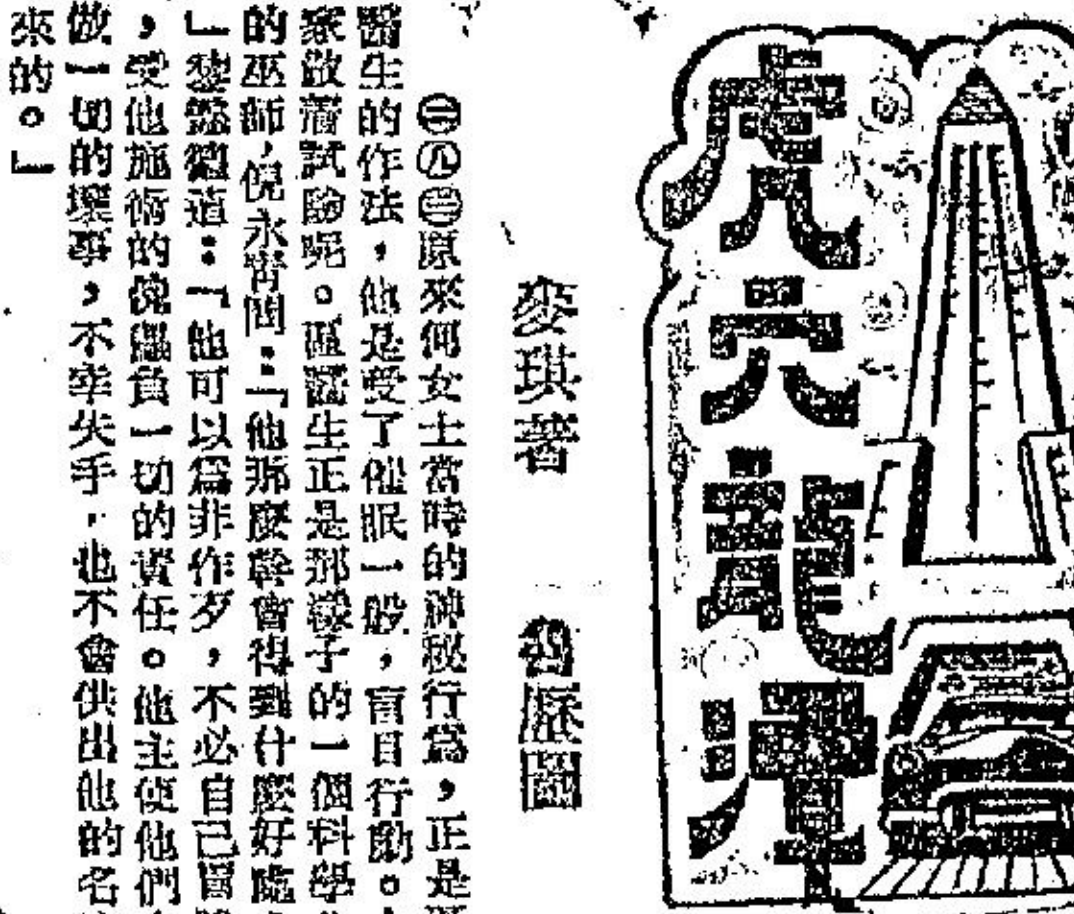 虎穴龍潭
麥琪著 歷圖
原來何女士當時的神秘行爲，正是
醫生的作法，他是受了催眠一般，盲目行動。
家做着試驗呢。區醫生正是那樣子的一個科學
的巫師，倪永宵問：「他那麼幹會得到什麼好處
」黎德道：「他可以爲非作歹，不必自己冒
，受他施術的傀儡負一切的責任。他主使他們
做一切的壞事，不幸失手，也不會供出他的名
來的。」